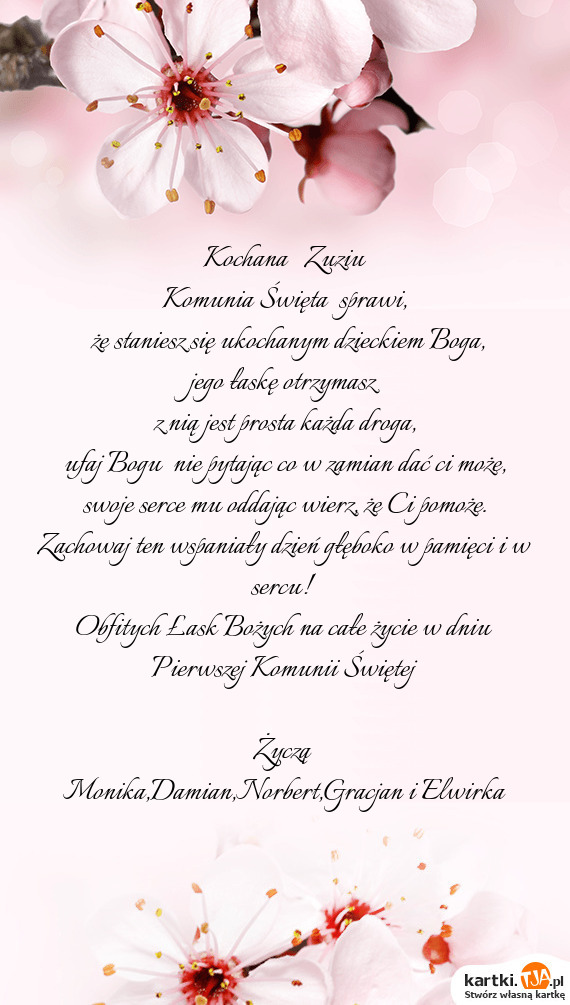 Kochana Zuziu
Komunia Święta sprawi,
że staniesz się ukochanym dzieckiem Boga,
jego łaskę otrzymasz
z nią jest prosta każda droga,
ufaj Bogu nie pytając co w zamian dać ci może,
swoje serce mu oddając wierz, że Ci pomoże.
Zachowaj ten wspaniały dzień głęboko w pamięci i w
sercu!
Obfitych Łask Bożych na całe życie w dniu
Pierwszej Komunii Świętej
Życzą
Monika,Damian,Norbert,Gracjan i Elwirka
kartki.TJA.pl
Stwórz własną kartkę